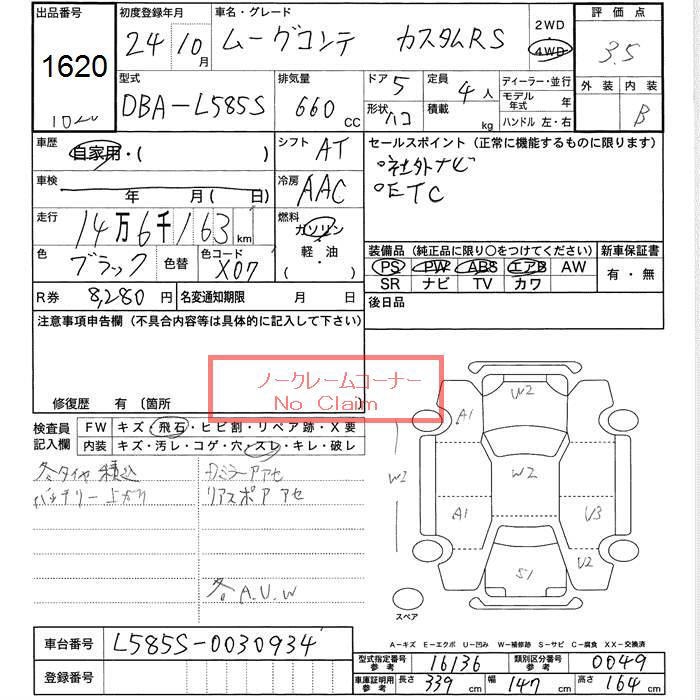 出品番号
1620
初度登録年月
24 10月
車名・グレード
ムーヴコンテ カスタムRS
2WD
4WD
評価点
3.5
外装 内装
B
型式
DBA-L585S
排気量
660 cc
ドア 5
形状 ハコ
定員 4人
積載 kg
ディーラー・並行
モデル年式 年
ハンドル 左・右
車歴
自家用・( )
シフト AT
車検
年 月( 日)
冷房 AAC
走行
14万6千163 km
燃料
ガソリン
軽・油
・( )
色
ブラック
色替
色コード
X07
R券 8,280円
名変通知期限 月 日
セールスポイント(正常に機能するものに限ります)
○社外ナビ
○ETC
装備品(純正品に限り○をつけてください)
PS PW ABS エアB AW
SR ナビ TV カワ
新車保証書
有・無
後日品
注意事項申告欄(不具合内容等は具体的に記入して下さい)
ノークレームコーナー
No Claim
修復歴 有(箇所
検査員記入欄
FW キズ・飛石・ヒビ割・リペア跡・X要
内装 キズ・汚レ・コゲ・穴・スレ・キレ・破レ
冬タイヤ積込
バッテリー上がり
ドアミラーアセ
リアスポアアセ
各A.U.W
W2
A1
W1
W2
A1
U3
U2
S1
スペア
A-キズ E-エクボ U-凹み W-補修跡 S-サビ C-腐食 XX-交換済
車台番号 L585S-0030934
登録番号
型式指定番号参考 16136
類別区分番号参考 0049
車庫証明用参考 長さ 339 cm 幅 147 cm 高さ 164 cm